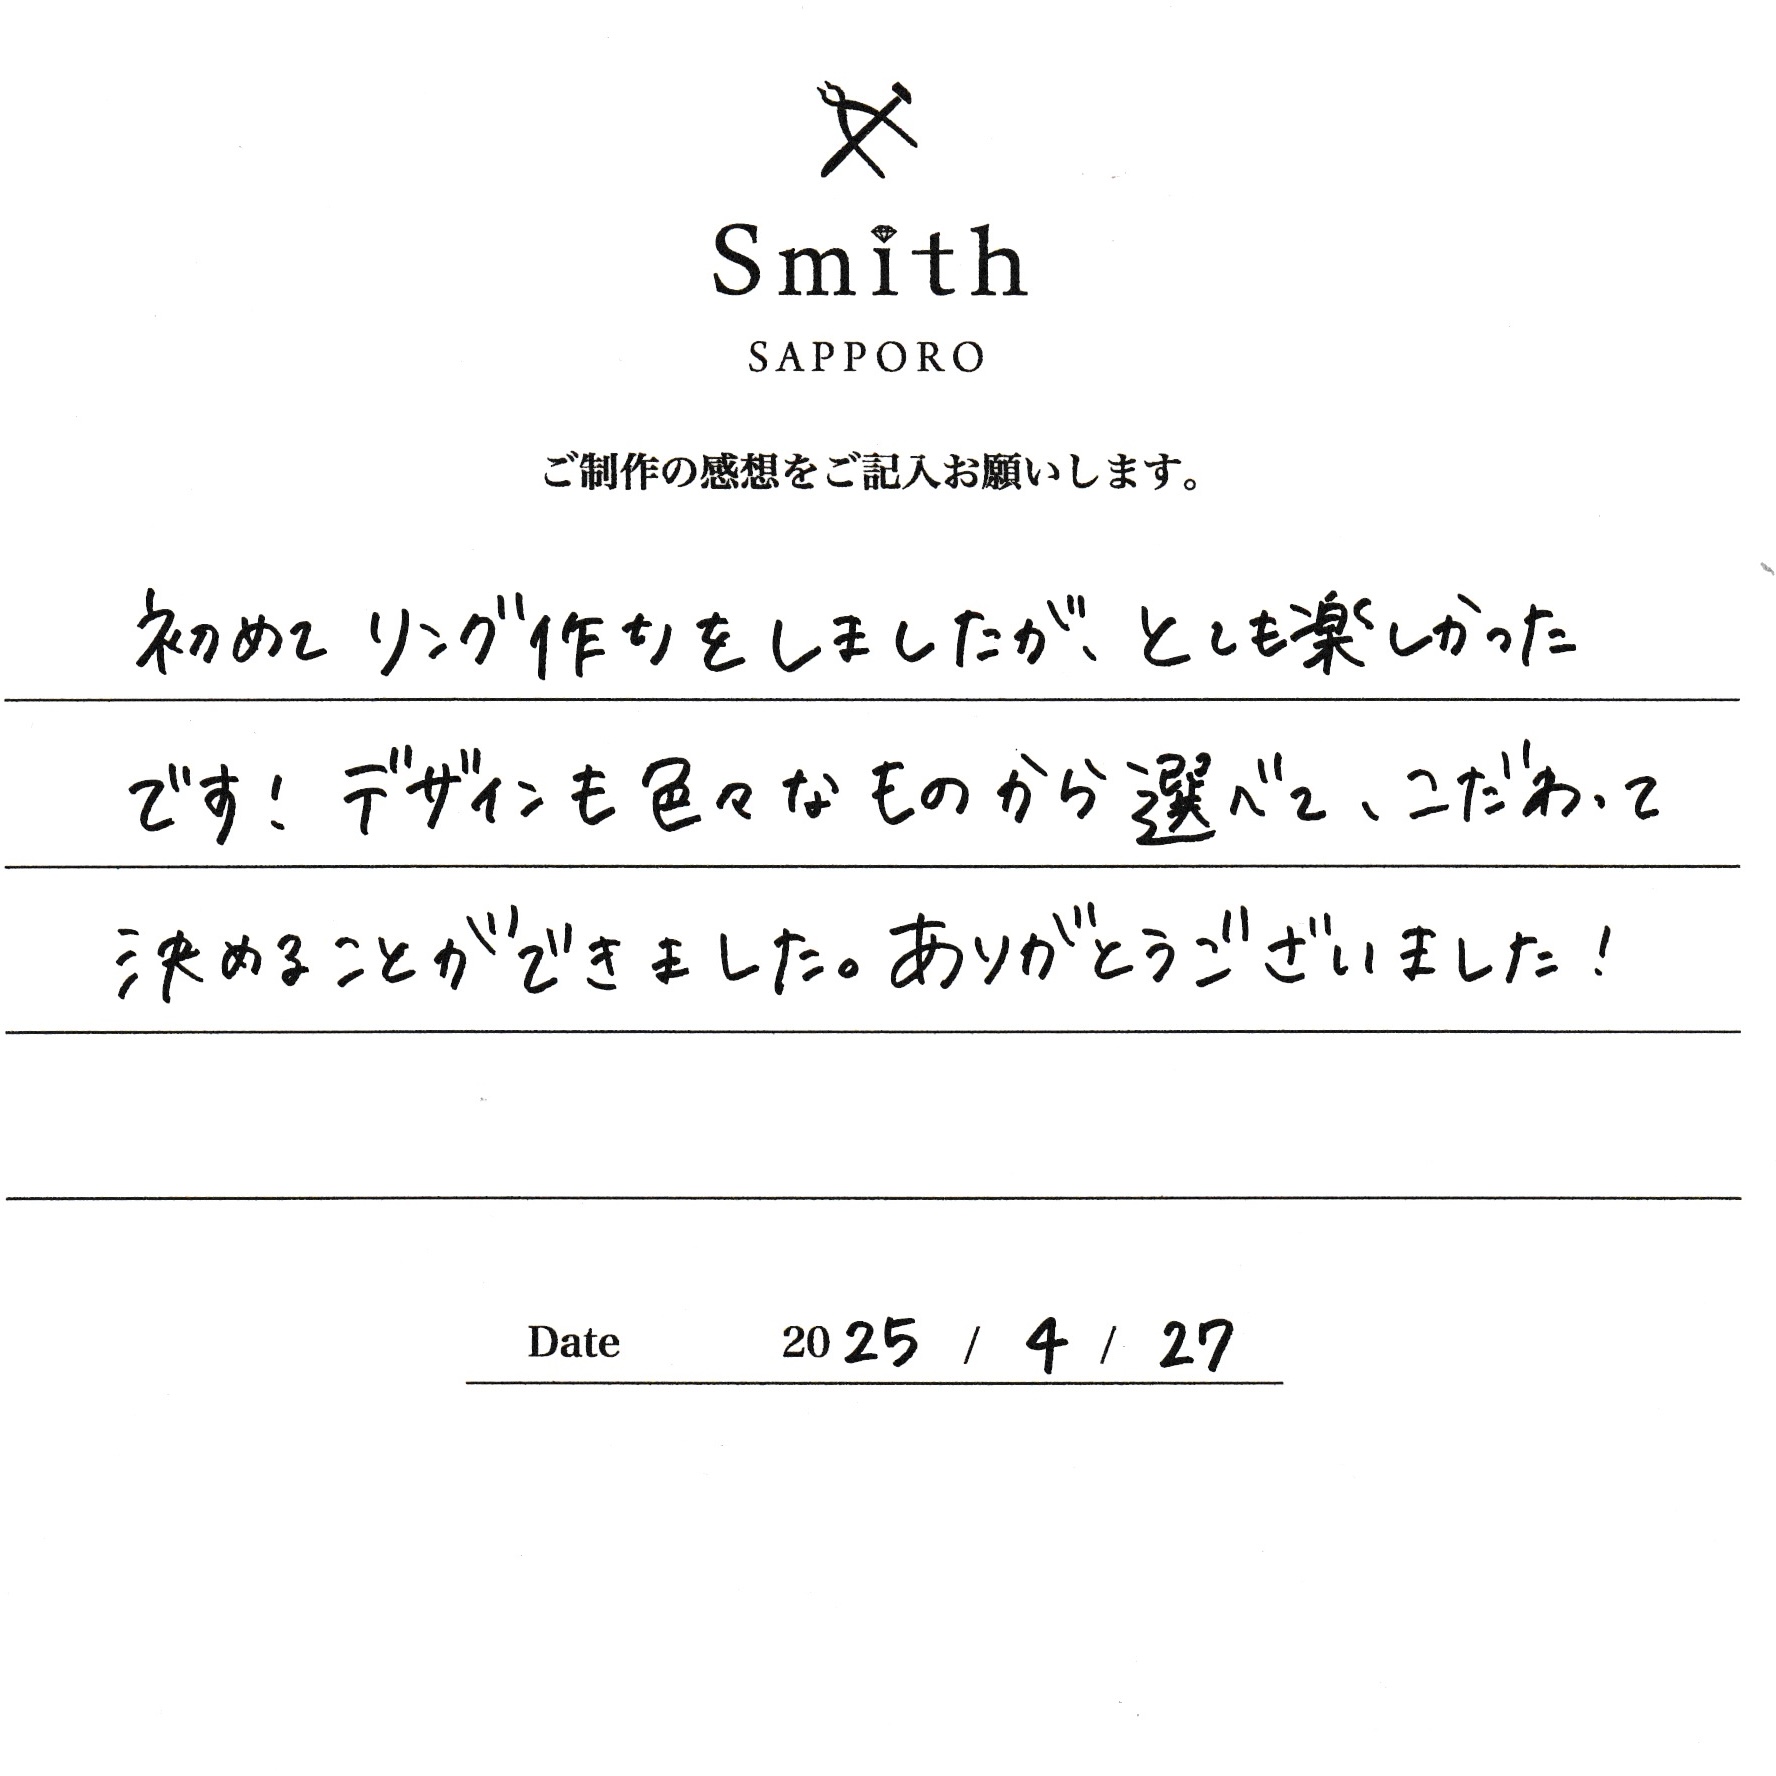 Smith
SAPPORO
ご制作の感想をご記入お願いします。
初めてリング作りをしましたが、とても楽しかった
です！デザインも色々なものから選べて、こだわって
決めることができました。ありがとうございました！
Date 2025 / 4 / 27